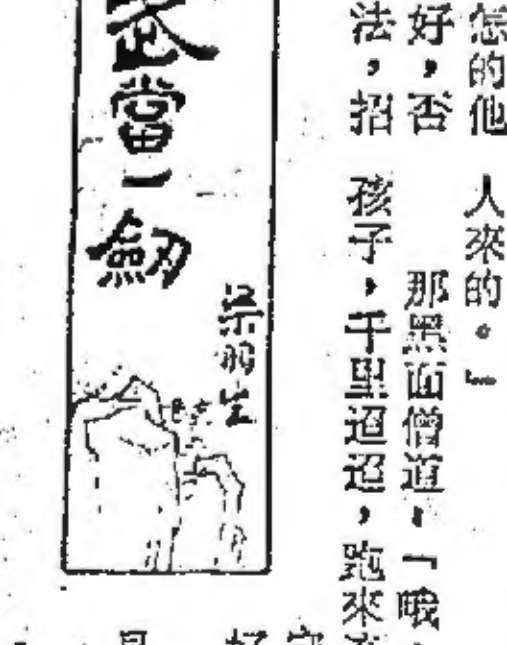 怎的他
好，否
法，招
人來的。」
那黑面僧道，「哦
孩子，千里迢迢，跑來
武當一劍
梁羽生